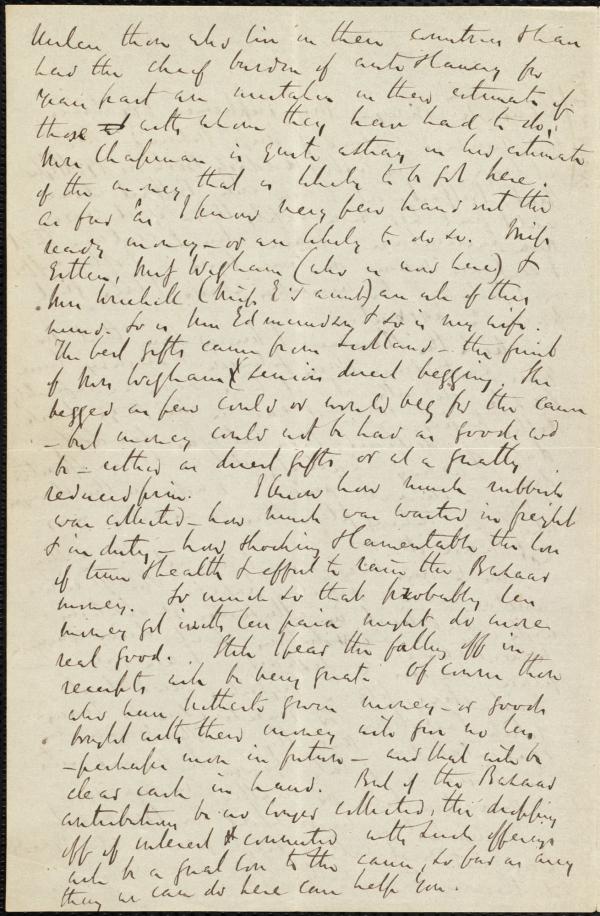 Unless those who live in these countries & have
had the chief burden of anti slavery for
years past are mistaken in their estimate of
those with whom they have had to do,
Mrs Chapman is quite astray in her estimate
of the money that is likely to be got here.
as far as I know very few hand out the
ready money – or are likely to do so. Miss
Estlin, Miss Wigham (who is now here) &
Mrs Michell (Miss E's aunt) are all of this
mind. So is Mrs Edmundson & so is my wife.
The best gifts came from Scotland – the fruit
of Mrs Wigham senior's direct begging. She
begged as few could or would beg for the cause
– but money could not be had as goods cd
be – either as direct gifts or at a greatly
reduced price. I know how much rubbish
was collected – how much was wasted in freight
& in duty – how shocking & lamentable the loss
of time & health & effort to raise the Bazaar
money. So much so that probably less
money got with less pain might do more
real good. Still I fear the falling off in
receipts will be very great. Of course those
who have hitherto given money – or goods
bought with their money will give no less
– perhaps more in future – and that will be
clear cash in hand. But if the Bazaar
contributions be no longer collected, the dropping
off of interest connected with such offerings
will be a great loss to the cause, so far as any
thing we can do here can help you.